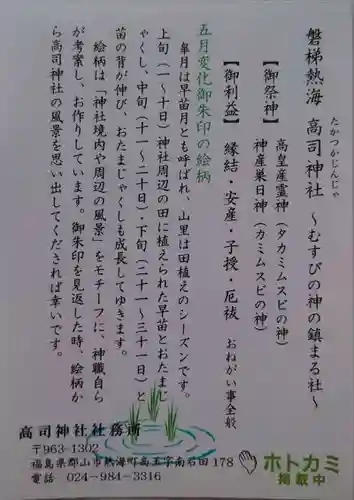 磐梯熱海 高司神社 ～むすびの神の鎮まる社～
たかつかじんじゃ
【御祭神】 高皇産霊神（タカミムスビの神）
神産巣日神（カミムスビの神）
【御利益】 縁結・安産・子授・厄祓 おねがい事全般
五月変化御朱印の絵柄
皐月は早苗月とも呼ばれ、山里は田植えのシーズンです。
上旬（一～十日）神社周辺の田に植えられた早苗とおたまじ
ゃくし、中旬（十一～二十日）・下旬（二十一～三十一日）と
苗の背が伸び、おたまじゃくしも成長してゆきます。
絵柄は「神社境内や周辺の風景」をモチーフに、神職自ら
が考案し、お作りしています。御朱印を見返した時、絵柄か
ら高司神社の風景を思い出してくだされば幸いです。
高司神社社務所
〒963-1302
福島県郡山市熱海町高玉字南右田178
電話 024-984-3316
ホトカミ
掲載中